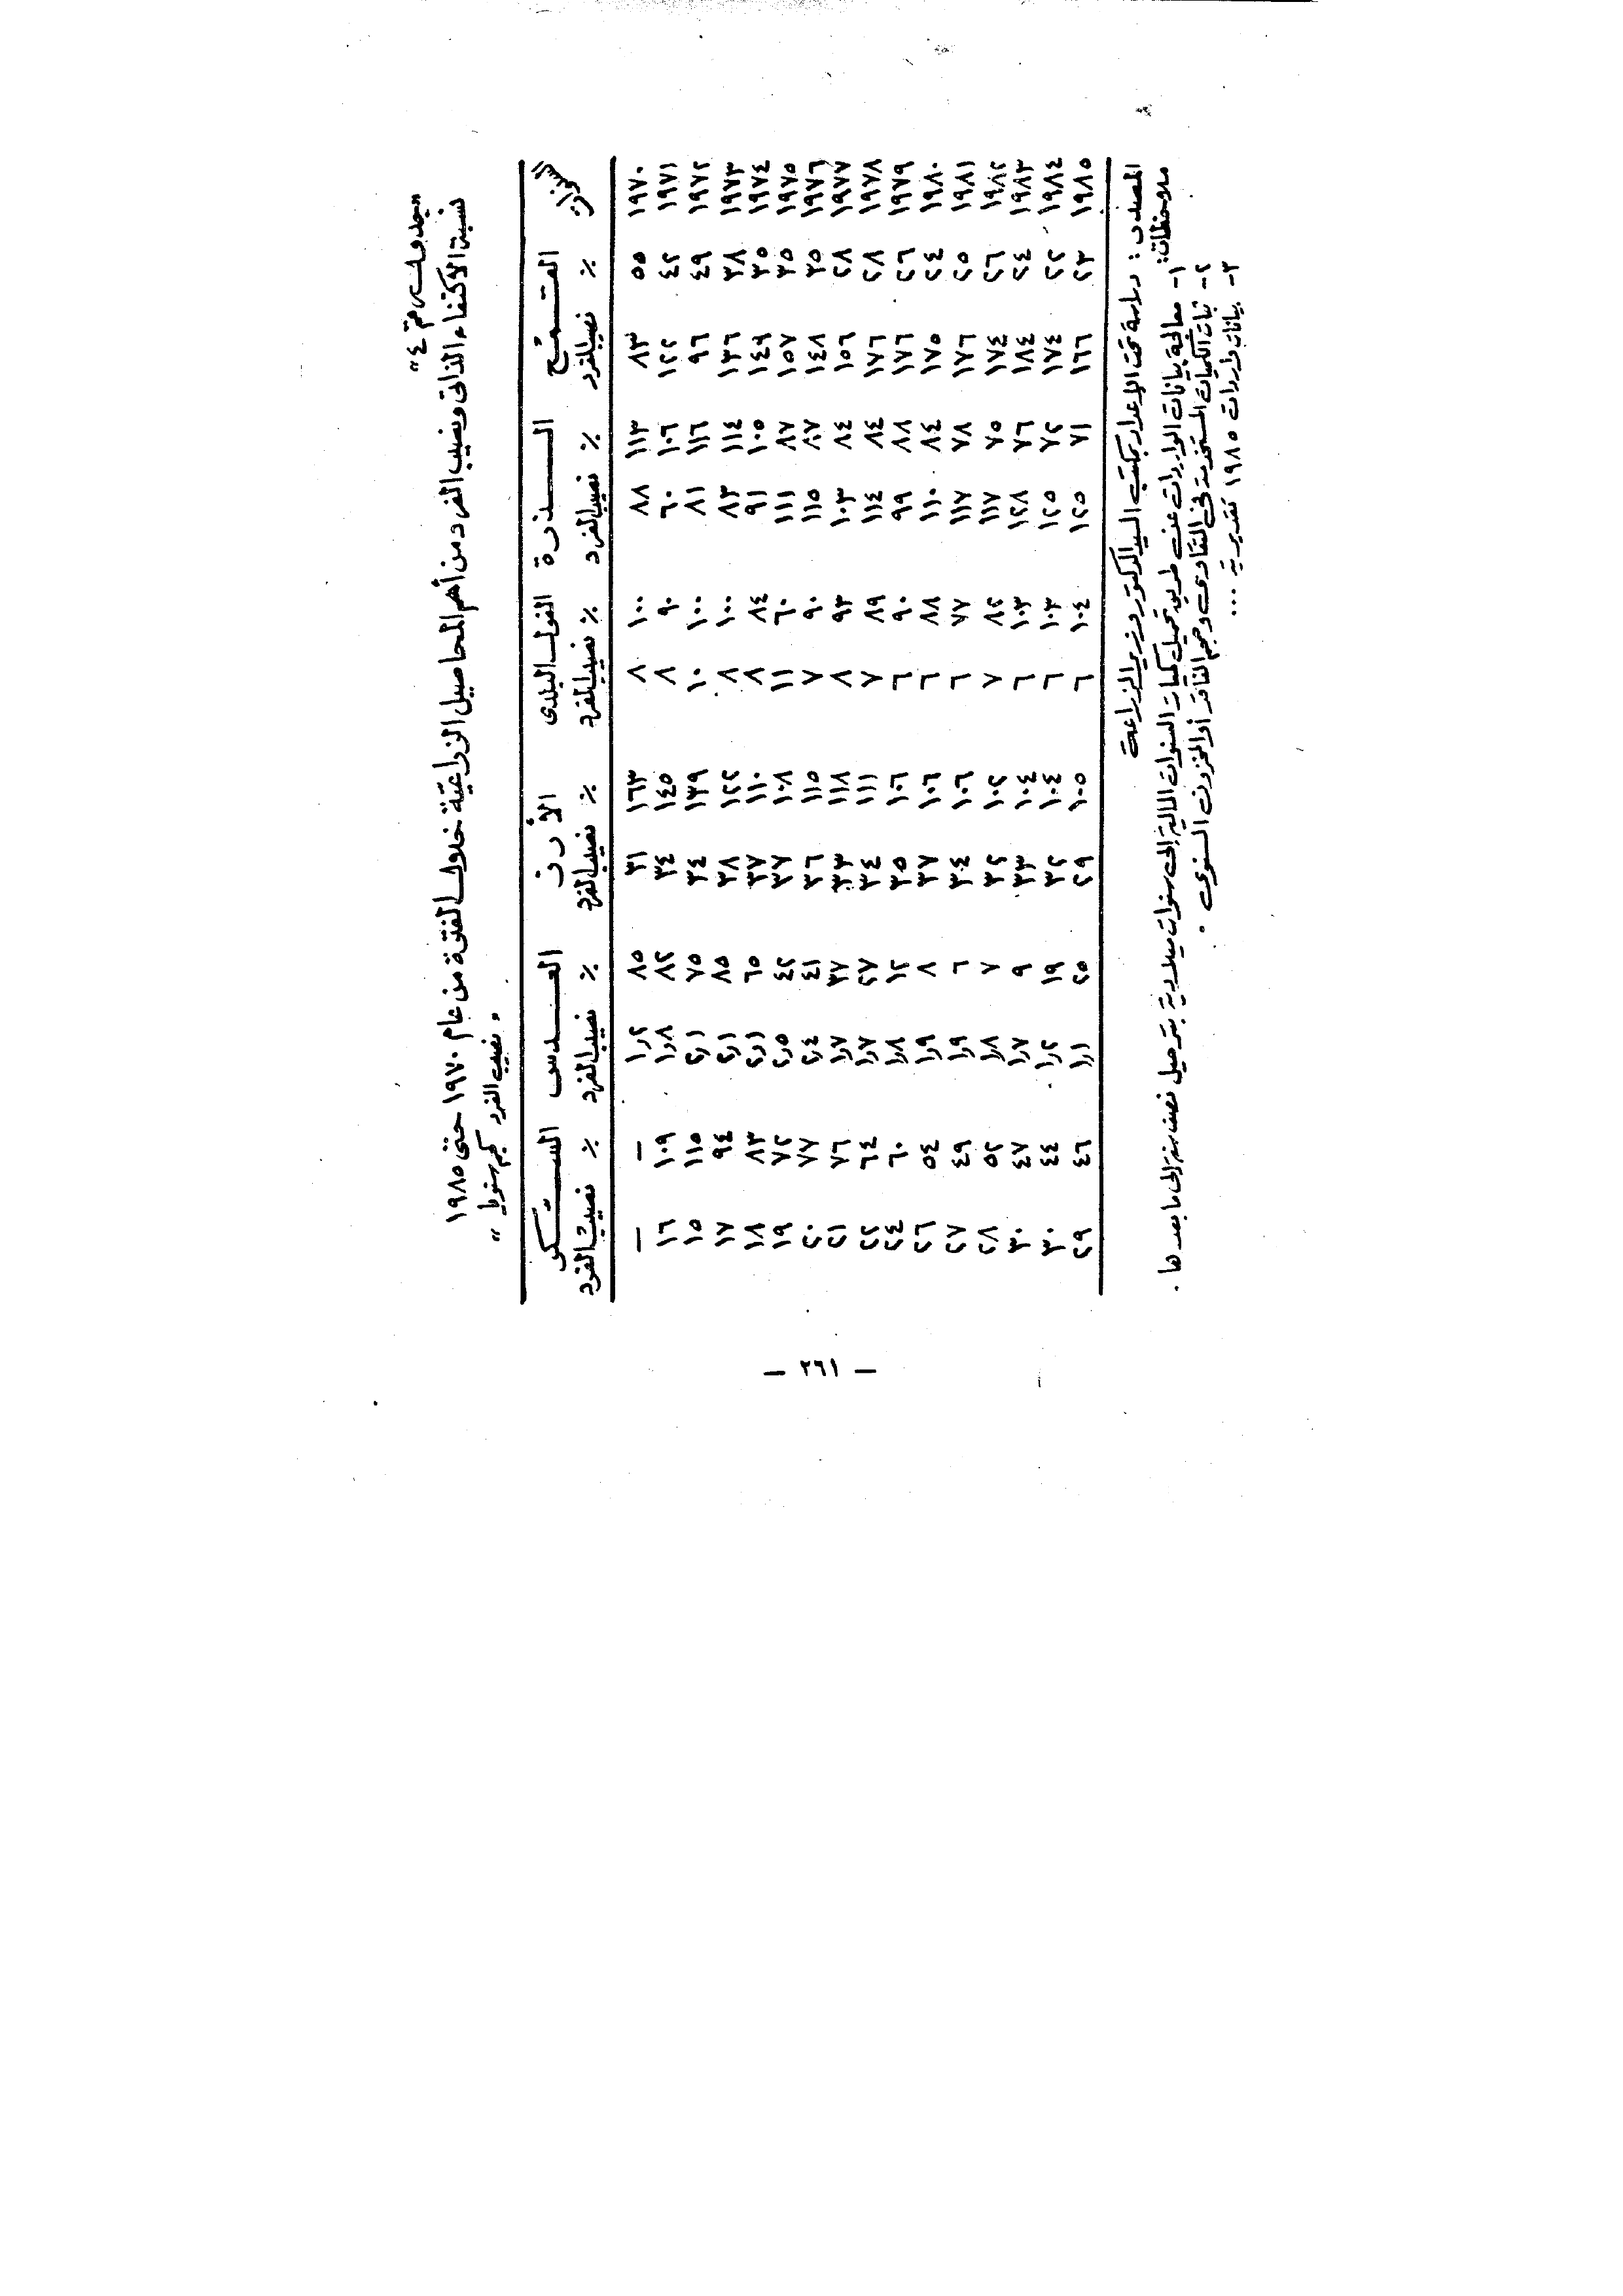 "جدول رقم ٤"
نسبة الاكتفاء الذاتى ونصيب الفرد من أهم المحاصيل الزراعية خلال الفترة من عام ١٩٧٠ حتى ١٩٨٥
" نصيب الفرد كجم سنويا "
السنوات القمح الذرة الفول البلدى الأرز العدس السكر
٪ نصيب الفرد ٪ نصيب الفرد ٪ نصيب الفرد ٪ نصيب الفرد ٪ نصيب الفرد ٪ نصيب الفرد
١٩٧٠ ٥٥ ٨٣ ١١٣ ٨٨ ١٠٠ ٨ ١٦٣ ٣١ ٨٥ ١٫٢ — —
١٩٧١ ٤٢ ١٢٢ ١٠٦ ٦٠ ٩٠ ٨ ١٤٥ ٣٤ ٨٢ ١٫٨ ١٠٩ ١٦
١٩٧٢ ٤٩ ٩٦ ١١٦ ٨١ ١٠٠ ١٠ ١٣٩ ٣٤ ٧٥ ٢٫١ ١١٥ ١٥
١٩٧٣ ٣٨ ١٣٦ ١١٤ ٨٣ ١٠٠ ٨ ١٢٢ ٣٨ ٨٥ ٢٫١ ٩٤ ١٧
١٩٧٤ ٣٥ ١٤٩ ١٠٥ ٩١ ٨٤ ٨ ١١٠ ٣٧ ٦٥ ٢٫١ ٨٣ ١٨
١٩٧٥ ٣٥ ١٥٧ ٨٧ ١١١ ٦٠ ١١ ١٠٨ ٣٧ ٤٢ ٢٫٥ ٧٢ ١٩
١٩٧٦ ٣٥ ١٤٨ ٨٧ ١١٥ ٩٠ ٧ ١١٥ ٣٦ ٤١ ٢٫٤ ٧٧ ٢٠
١٩٧٧ ٢٨ ١٥٦ ٨٤ ١٠٣ ٩٣ ٨ ١١٨ ٣٣ ٣٧ ١٫٧ ٧٦ ٢١
١٩٧٨ ٢٨ ١٧٦ ٨٤ ١١٤ ٨٩ ٧ ١١١ ٣٤ ٢٧ ١٫٧ ٦٤ ٢٢
١٩٧٩ ٢٦ ١٧٦ ٨٨ ٩٩ ٩٠ ٦ ١٠٦ ٣٥ ١٢ ١٫٨ ٦٠ ٢٤
١٩٨٠ ٢٤ ١٧٥ ٨٤ ١١٠ ٨٨ ٦ ١٠٦ ٣٧ ٨ ١٫٩ ٥٤ ٢٦
١٩٨١ ٢٥ ١٧٦ ٧٨ ١١٧ ٧٧ ٦ ١٠٦ ٣٤ ٦ ١٫٩ ٤٩ ٢٧
١٩٨٢ ٢٦ ١٧٤ ٧٥ ١١٧ ٨٢ ٧ ١٠٢ ٣٢ ٧ ١٫٨ ٥٢ ٢٨
١٩٨٣ ٢٤ ١٨٤ ٧٦ ١٢٨ ١٠٣ ٦ ١٠٤ ٣٣ ٩ ١٫٧ ٤٧ ٣٠
١٩٨٤ ٢٢ ١٧٤ ٧٢ ١٢٥ ١٠٣ ٦ ١٠٤ ٣٢ ١٩ ١٫٢ ٤٤ ٣٠
١٩٨٥ ٢٣ ١٦٦ ٧١ ١٢٥ ١٠٤ ٦ ١٠٥ ٢٩ ٢٥ ١٫١ ٤٦ ٢٩
المصدر : دراسة تحت الإعداد بمكتب السيد الدكتور وزير الزراعة
ملاحظات: ١- معالجة بيانات الواردات عن طريق تحميل كميات السنوات المالية إلى سنوات ميلادية بترحيل نصف سنة إلى ما بعدها .
٢- ثبات الكميات المستخدمة فى التقاوى وحجم الفاقد أو المخزون السنوى .
٣- بيانات واردات ١٩٨٥ تقديرية ...
— ٢٦١ —